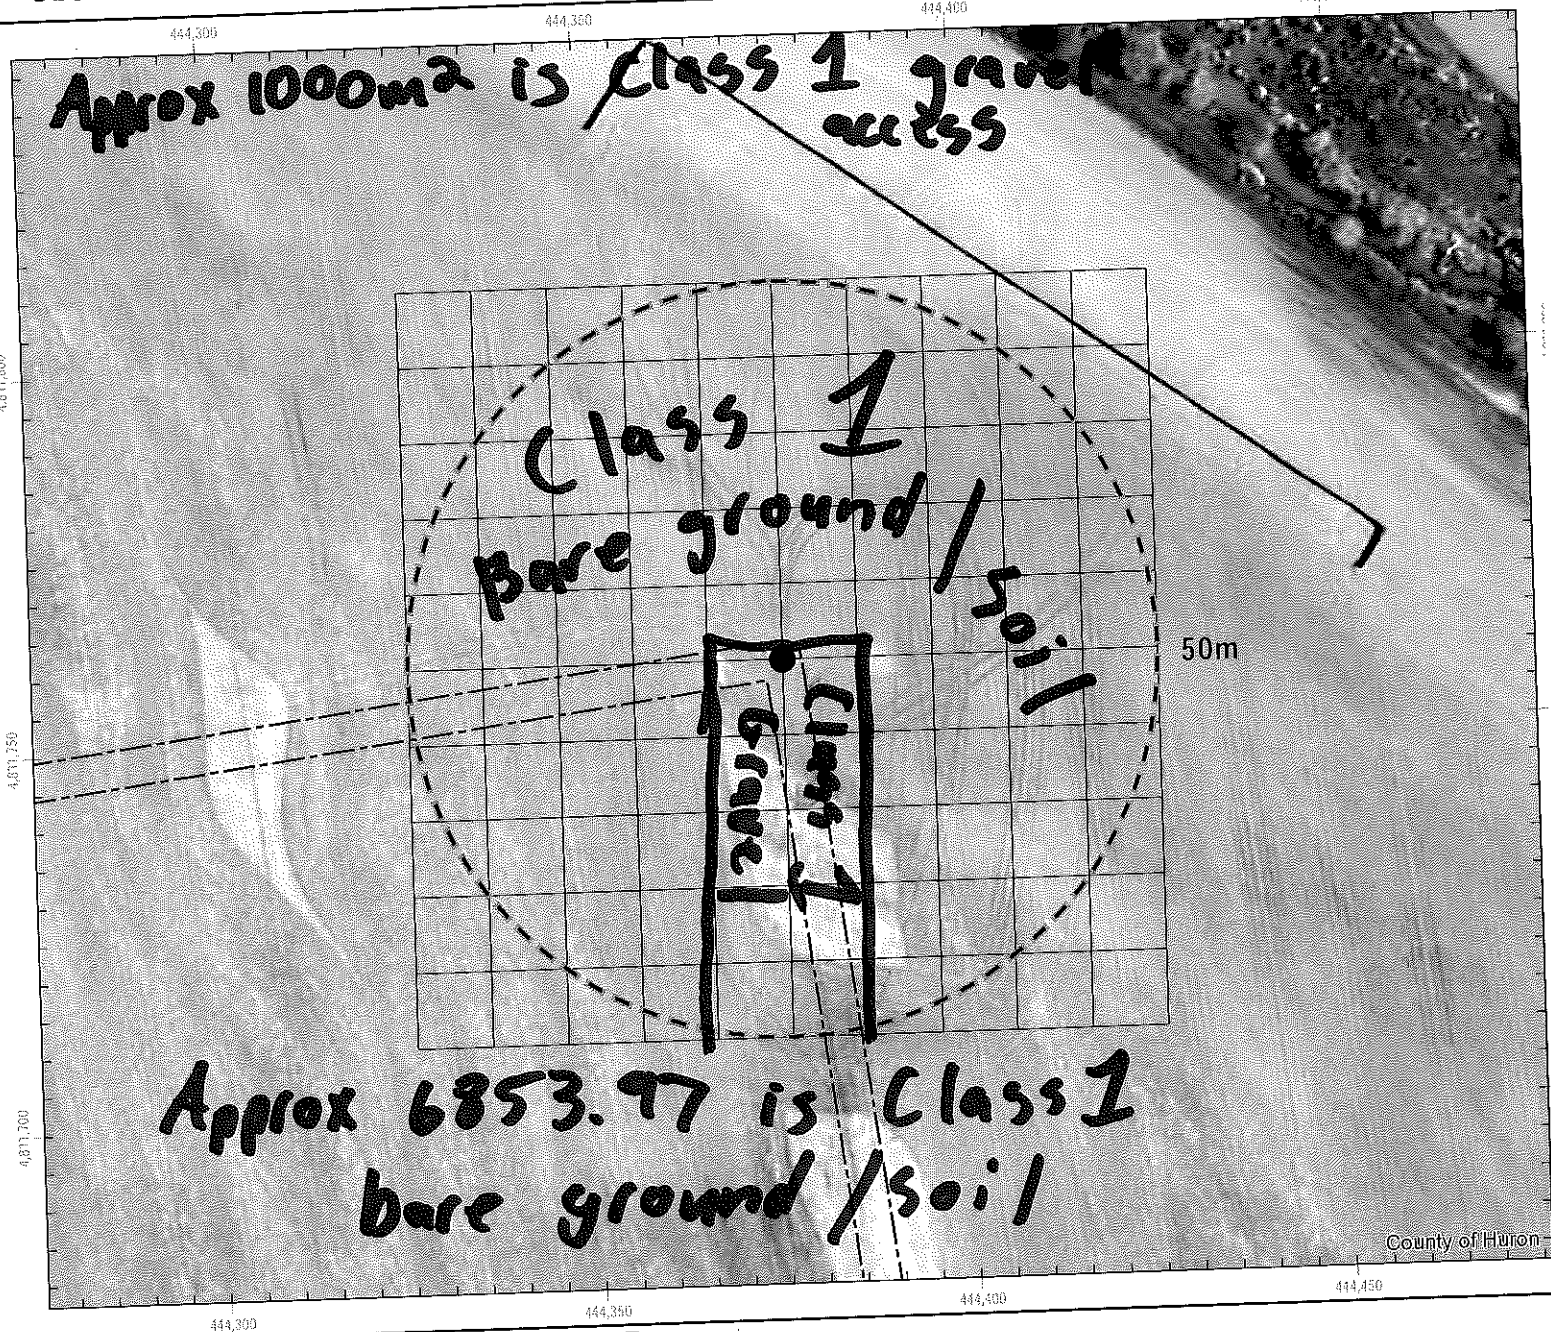 444,300
444,350
444,400
Approx 1000m² is Class 1 gravel
access
Class 1
Bare ground/
soil
50m
Class 1
Gravel
4,811,750
Approx 6853.97 is Class 1
bare ground/soil
4,811,700
County of Huron
444,300
444,350
444,400
444,450